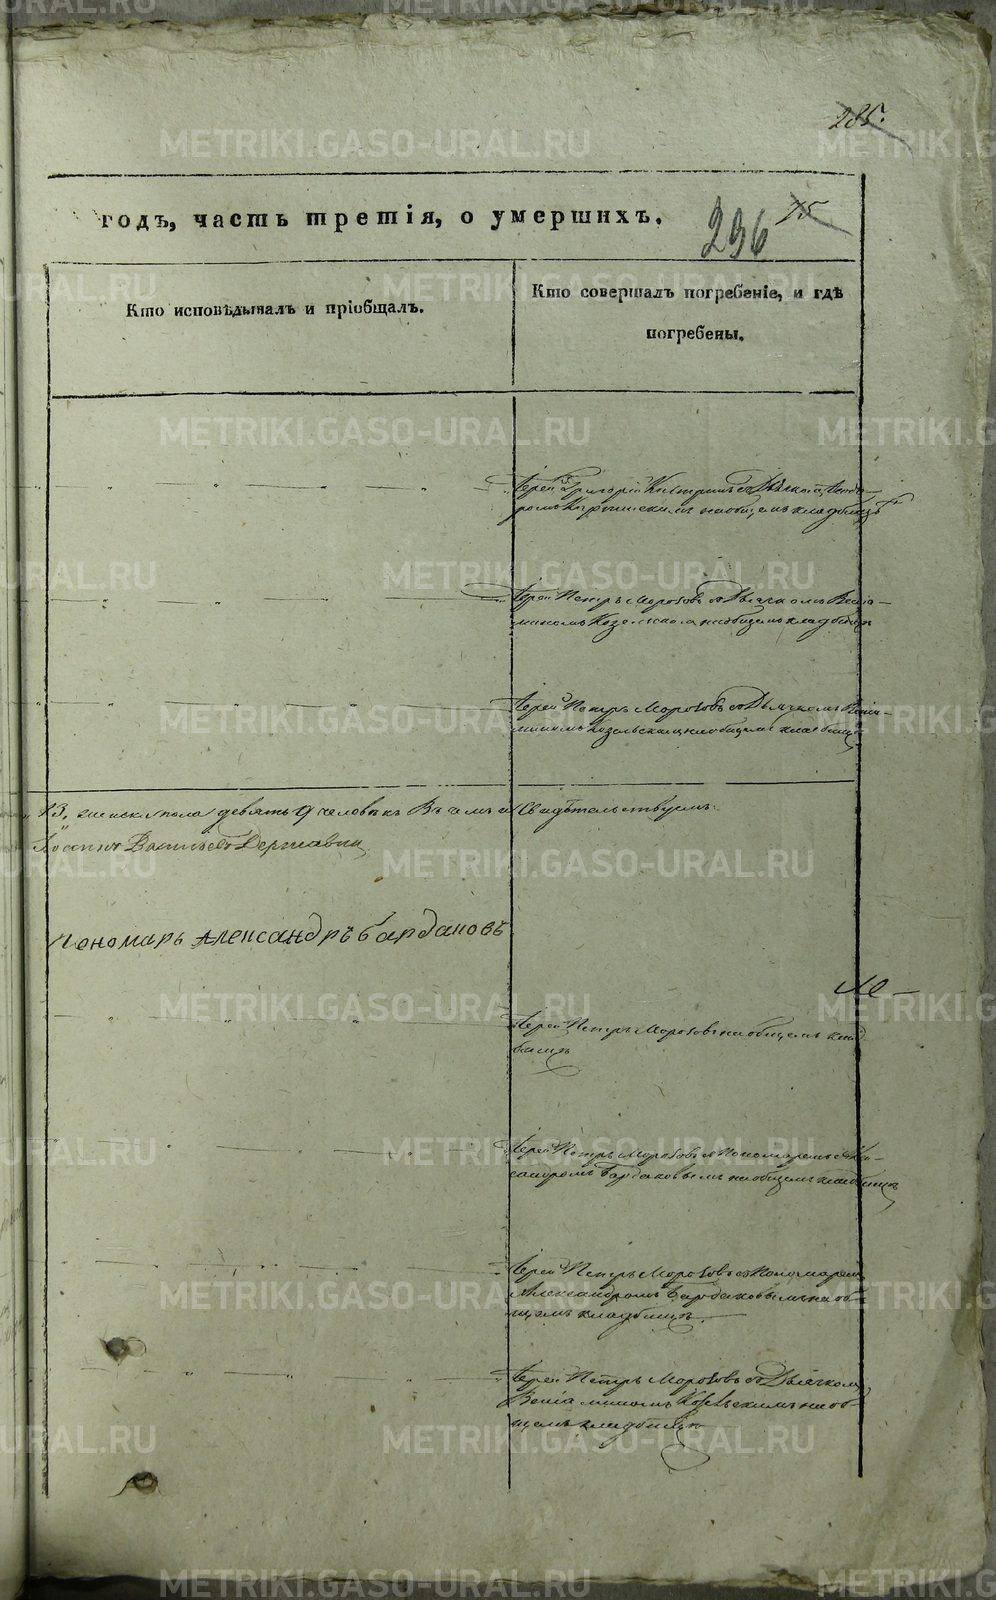 285.
годъ, часть третія, о умершихъ.
236 75
Кто исповѣдывалъ и пріобщалъ.
Кто совершалъ погребеніе, и гдѣ
погребены.
Іерей Григорій
на общемъ кладбищѣ
Іерей Петръ Морозовъ съ Дьячкомъ Веніа-
миномъ Козельскимъ на общемъ кладбищѣ
Іерей Петръ Морозовъ съ Дьячкомъ Веніа-
миномъ Козельскимъ на общемъ кладбищѣ
13, женска пола девять 9 человѣкъ Въ чемъ и Свидѣтельствуемъ.
Державин
Пономарь Александръ Бардаковъ
Іерей Петръ Морозовъ на общемъ клад-
бищѣ
Іерей Петръ Морозовъ съ Пономаремъ Алек-
сандромъ Бардаковымъ на общемъ кладбищѣ
Іерей Петръ Морозовъ съ Пономаремъ
Александромъ Бардаковымъ на об-
щемъ кладбищѣ.
Іерей Петръ Морозовъ съ Дьячкомъ
Веніаминомъ Козельскимъ на об-
щемъ кладбищѣ
METRIKI.GASO-URAL.RU